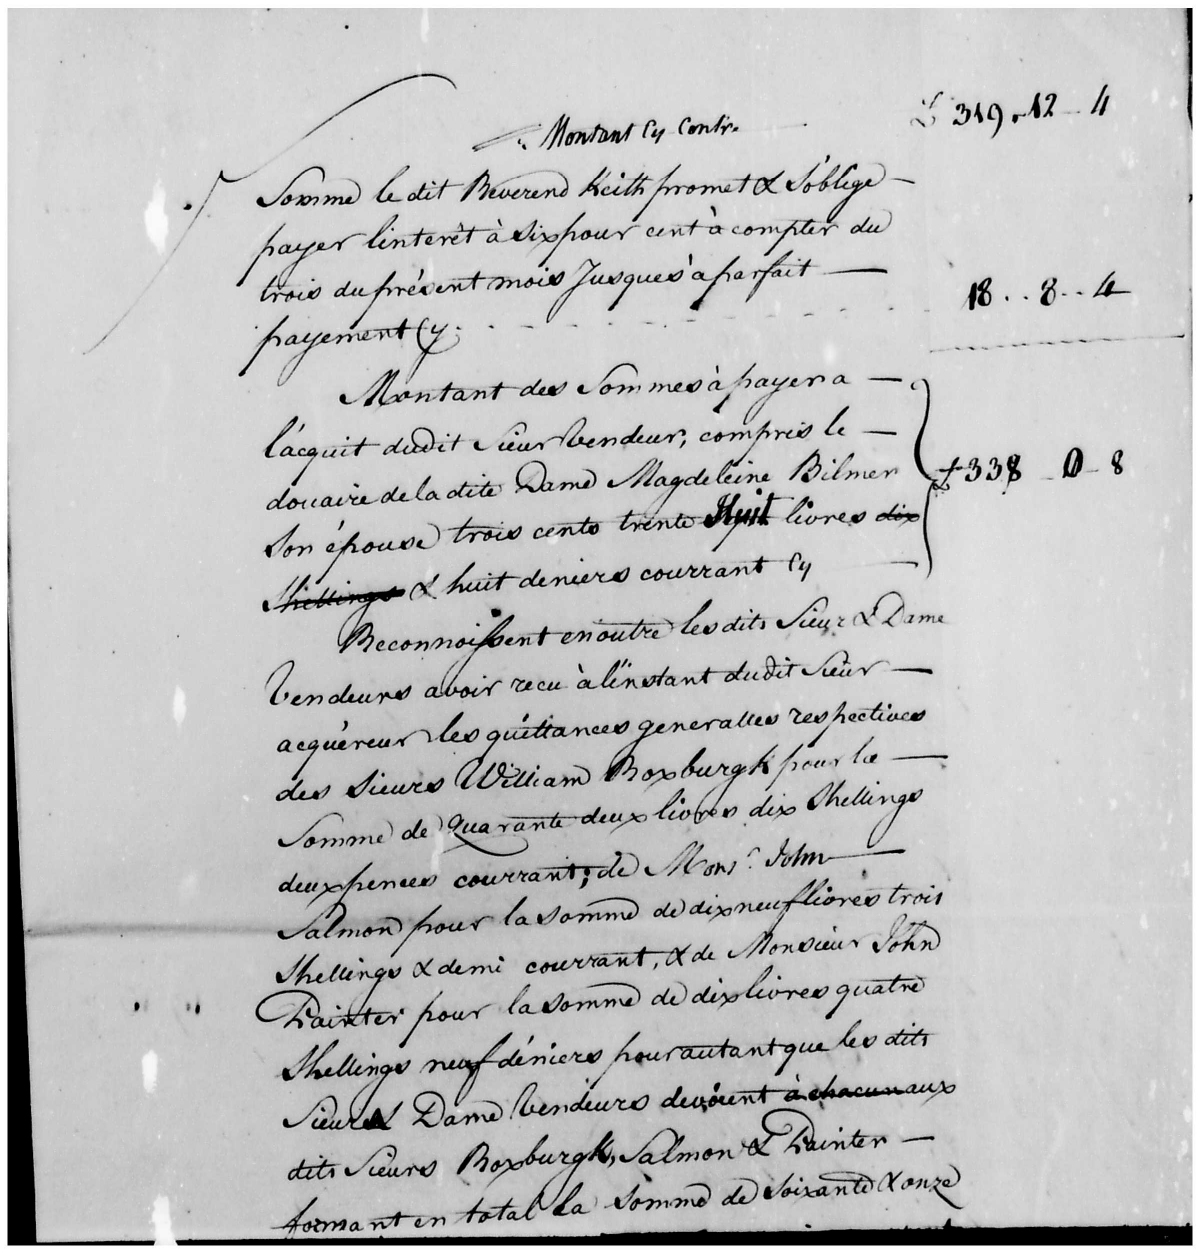 Montant Cy Contre £ 319 . 12 - 4
Somme le dit Reverend Keith promet & s'oblige
payer l'interêt à six pour cent à compter du
trois du présent mois Jusques à parfait
payement Cy. 18 . . 8 . . 4
Montant des Sommes à payer a
l'acquit dudit Sieur Vendeur, compris le
douaire de la dite Dame Magdeleine Bilmer £ 338 - 0 - 8
son épouse trois cents trente Huit livres dix
Shellings & huit deniers courrant Cy
Reconnoissent en outre les dits Sieur & Dame
Vendeurs avoir recu à l'instant dudit Sieur
acquéreur les quittances generalles respectives
des sieurs William Roxburgk pour la
Somme de Quarante deux livres dix Shellings
deux pences courrant; de Monsr. John
Salmon pour la somme de dix neuf livres trois
Shellings & demi courrant, & de Monsieur John
Painter pour la somme de dix livres quatre
Shellings neuf déniers pour autant que les dits
Sieur & Dame Vendeurs devoient à chacun aux
dits Sieurs Roxburgk, Salmon & Painter
formant en total la somme de soixante & onze